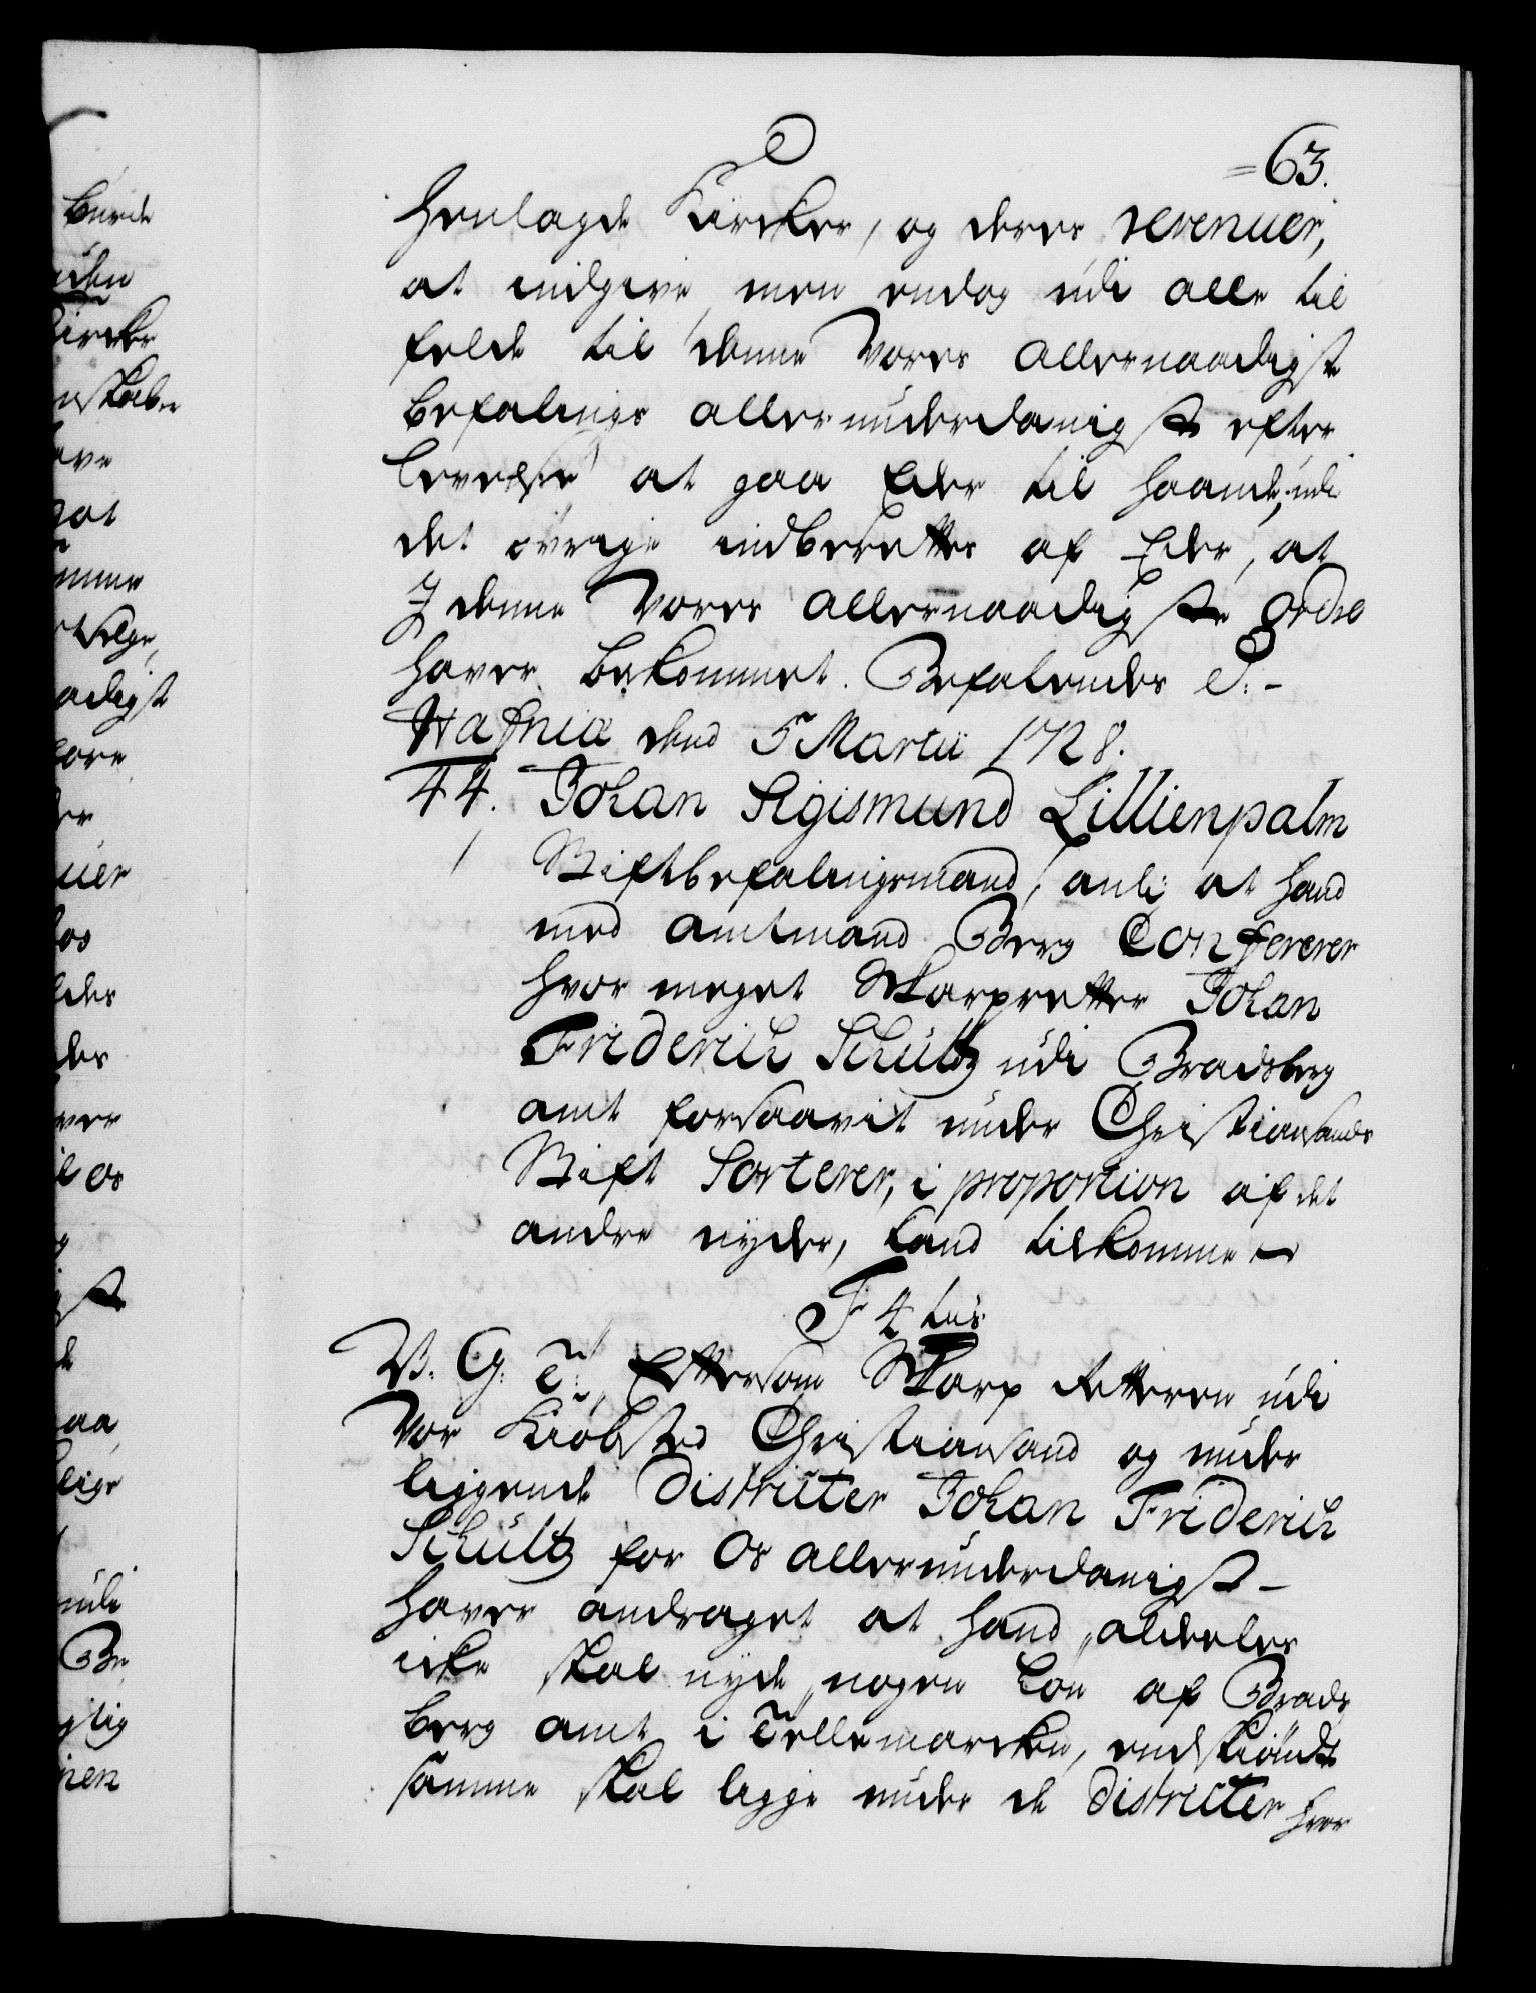 63.
henlagde Kircker, og deres revenuer,
at indgive, men endog udi alle til
felde til denne Vores allernaadigste
befalings allerunderdanigste efter
levelse at gaa Eder til haande, udi
det øvrige indberettes af Eder, at
I denne Vores allernaadigste Ordre
haver bekommet. Befalendes &.-
Hafniæ dend 5 Martii 1728.
44. Johan Sigismund Lillienpalm
Stiftbefalingsmand, anl: at hand
med amtmand Berg Confererer
hvor meget Skarpretter Johan
Friderich Schultz udi Bradsberg
amt forsaavit under Christiansands
Stift Sorterer, i proportion af det
andre nyder, kand tilkomme
F 4tus
V. G. T: Eftersom Skarp Retteren udi
Vor Kiøbsted Christiansand og under
liggende Districter Johan Friderich
Schultz for Os allerunderdanigst-
haver andraget at hand aldeeles
icke skal nyde nogen Løn af Brads
berg amt i Tellemarcken, endskiøndt
samme skal ligge under de Districter hvor